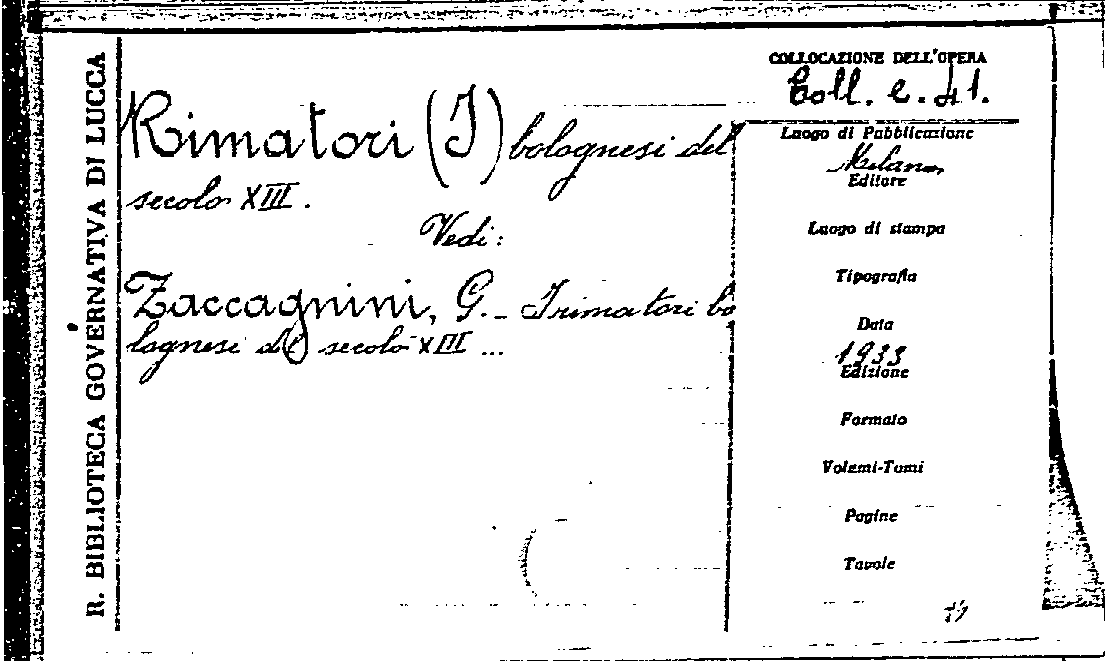 R. BIBLIOTECA GOVERNATIVA DI LUCCA
Rimatori (I) bolognesi del
secolo XIII.
Vedi:
Zaccagnini, G. _ I rimatori bo
lognesi del secolo XIII ...
COLLOCAZIONE DELL'OPERA
Coll. e. 41.
Luogo di Pubblicazione
Milano,
Editore
Luogo di stampa
Tipografia
Data
1933
Edizione
Formato
Volumi-Tomi
Pagine
Tavole